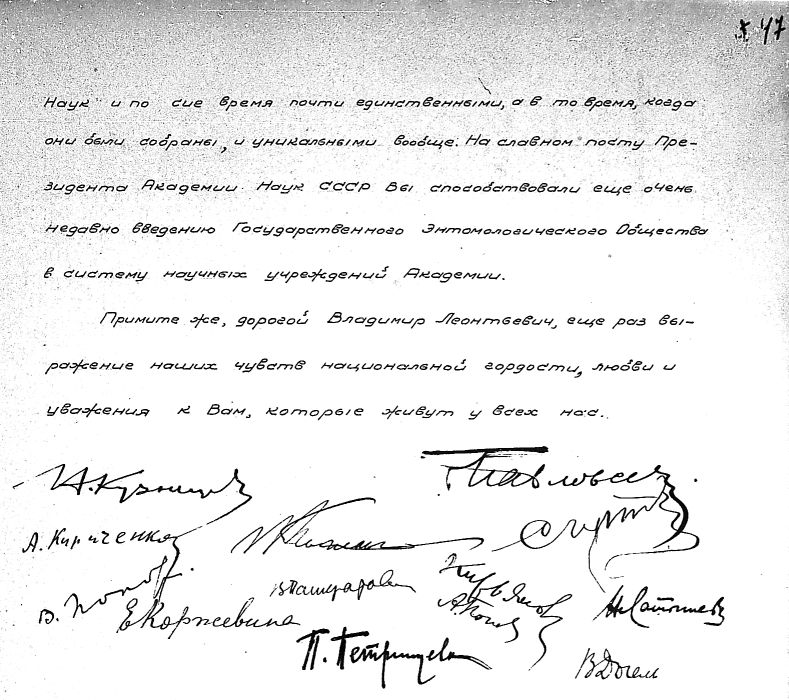 х 47
Наук и по сие время почти единственными, а в то время, когда
они были собраны, и уникальными вообще. На славном посту Пре-
зидента Академии Наук СССР Вы способствовали еще очень
недавно введению Государственного Энтомологического Общества
в систему научных учреждений Академии.
Примите же, дорогой Владимир Леонтьевич, еще раз вы-
ражение наших чувств национальной гордости, любви и
уважения к Вам, которые живут у всех нас.
Н. Кузнецов
Павловский
А. Кириченко
В. Попов
Е Коржевина
Кирьянов
А. Попов
П. Петрищева
В Догель